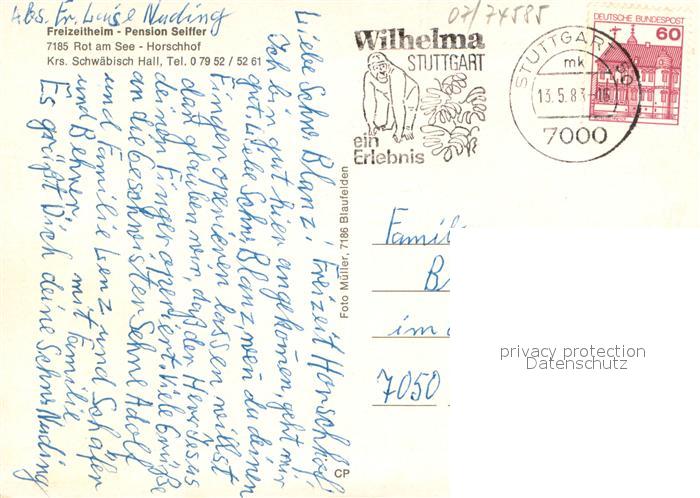 Abs. Fr. Luise Nuding
Freizeitheim - Pension Seiffer
7185 Rot am See - Horschhof
Krs. Schwäbisch Hall, Tel. 0 79 52 / 52 61
Liebe Schw. Blanz! Freizeit Horschhof
Ich bin gut hier angekomen, geht mir
gut, Liebe Schw. Blanz, wen du deinen
Finger operieren lassen willst
dan glauben wir, daß der Herr Jesus
deinen Finger operiert. Viele Grüße
an die Geschwister Sehne Adolf
und Familie Lenz und Schäfer
und Behner mit Familie
Es grüßt Dich deine Schw. Nuding
Foto Müller, 7186 Blaufelden
CP
07/74585
Wilhelma
STUTTGART
ein
Erlebnis
STUTTGART 50
mk
13.5.83
7000
DEUTSCHE BUNDESPOST
60
Famil
B
im
7050
privacy protection
Datenschutz